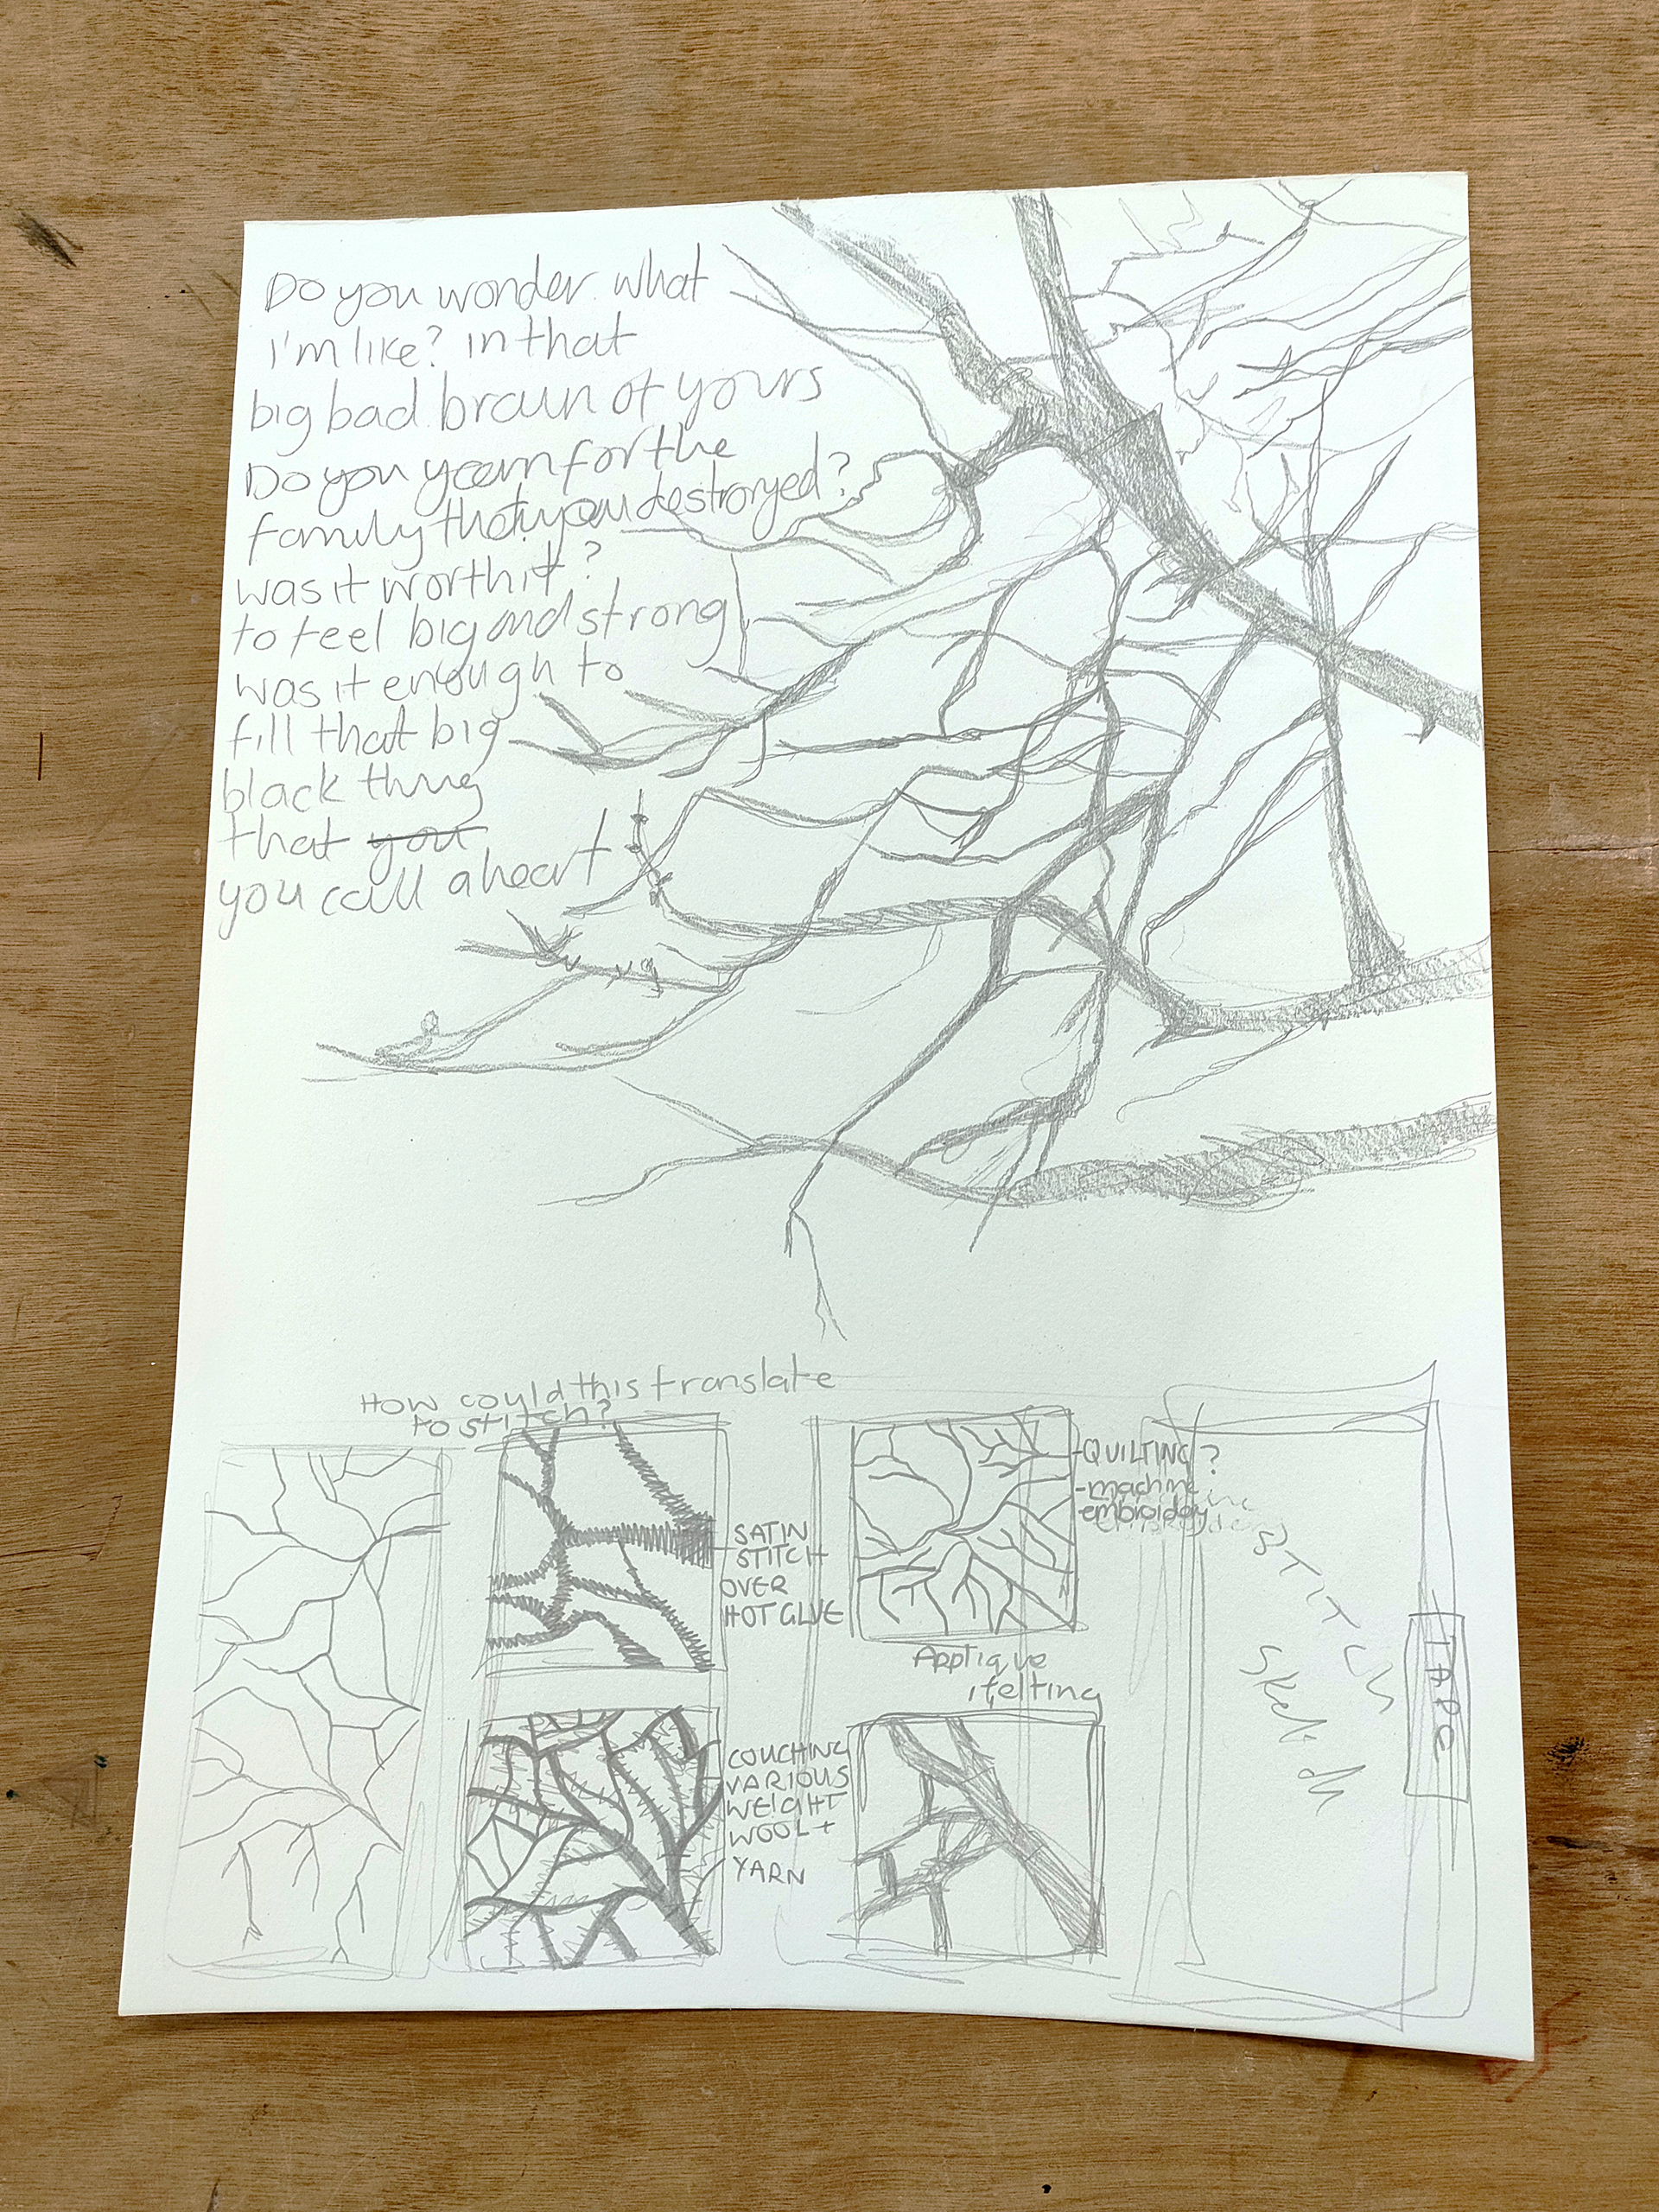 Do you wonder what
i'm like? in that
big bad brain of yours
Do you yearn for the
family that you destroryed?
was it worth it?
to feel big and strong
was it enough to
fill that big
black thing
that you
you call a heart
How could this translate
to stitch?
SATIN
STITCH
OVER
HOT GLUE
COUCHING
VARIOUS
WEIGHT
WOOL +
YARN
-QUILTING?
-machine
-embroidery
Applique
felting
STITCH
Sketch
TAPE